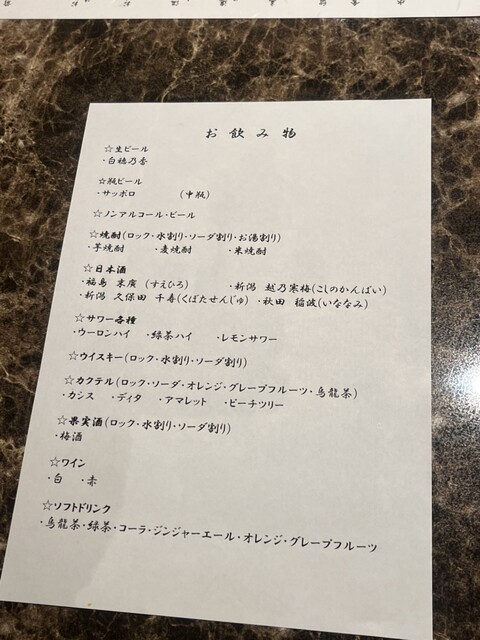 お飲み物
☆生ビール
・白穂乃香
☆瓶ビール
・サッポロ　（中瓶）
☆ノンアルコール・ビール
☆焼酎（ロック・水割り・ソーダ割り・お湯割り）
・芋焼酎　・麦焼酎　・米焼酎
☆日本酒
・福島　末廣（すえひろ）　・新潟　越乃寒梅（こしのかんばい）
・新潟　久保田　千寿（くぼたせんじゅ）・秋田　稲波（いななみ）
☆サワー各種
・ウーロンハイ　・緑茶ハイ　・レモンサワー
☆ウイスキー（ロック・水割り・ソーダ割り）
☆カクテル（ロック・ソーダ・オレンジ・グレープフルーツ・烏龍茶）
・カシス　・ディタ　・アマレット　・ピーチツリー
☆果実酒（ロック・水割り・ソーダ割り）
・梅酒
☆ワイン
・白　・赤
☆ソフトドリンク
・烏龍茶・緑茶・コーラ・ジンジャーエール・オレンジ・グレープフルーツ